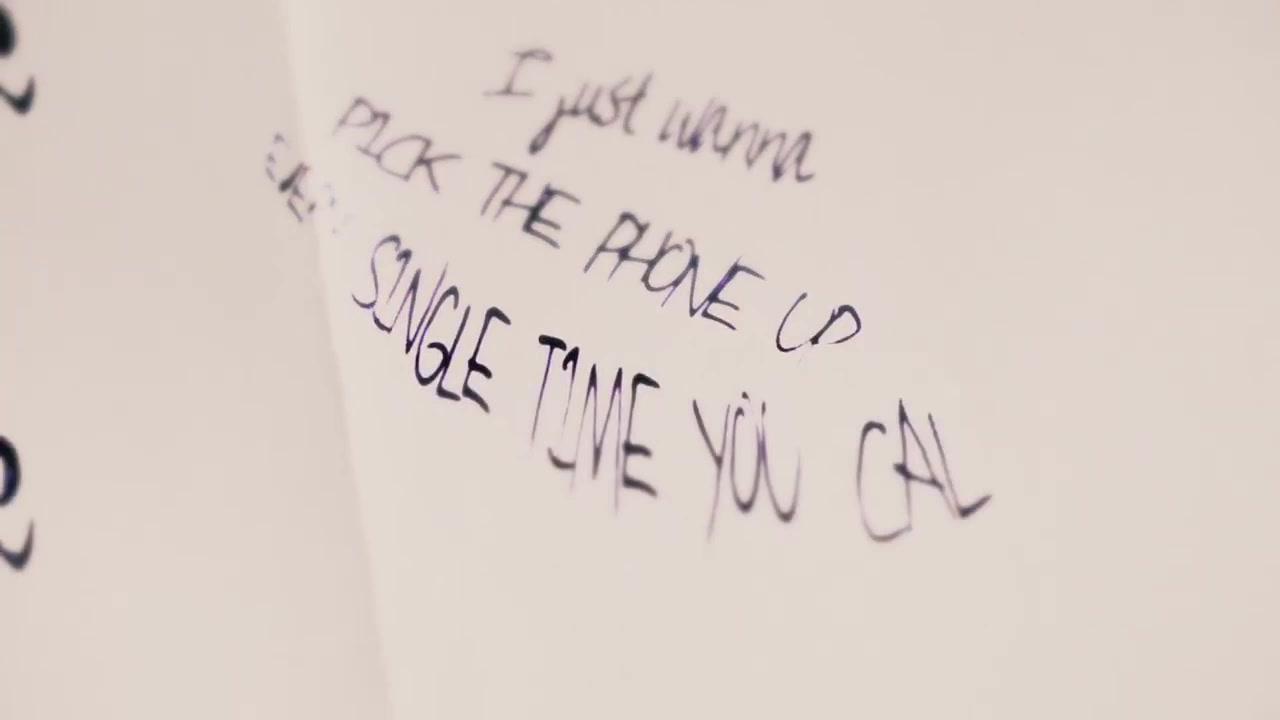 I just wanna
PICK THE PHONE UP
SINGLE TIME YOU CAL